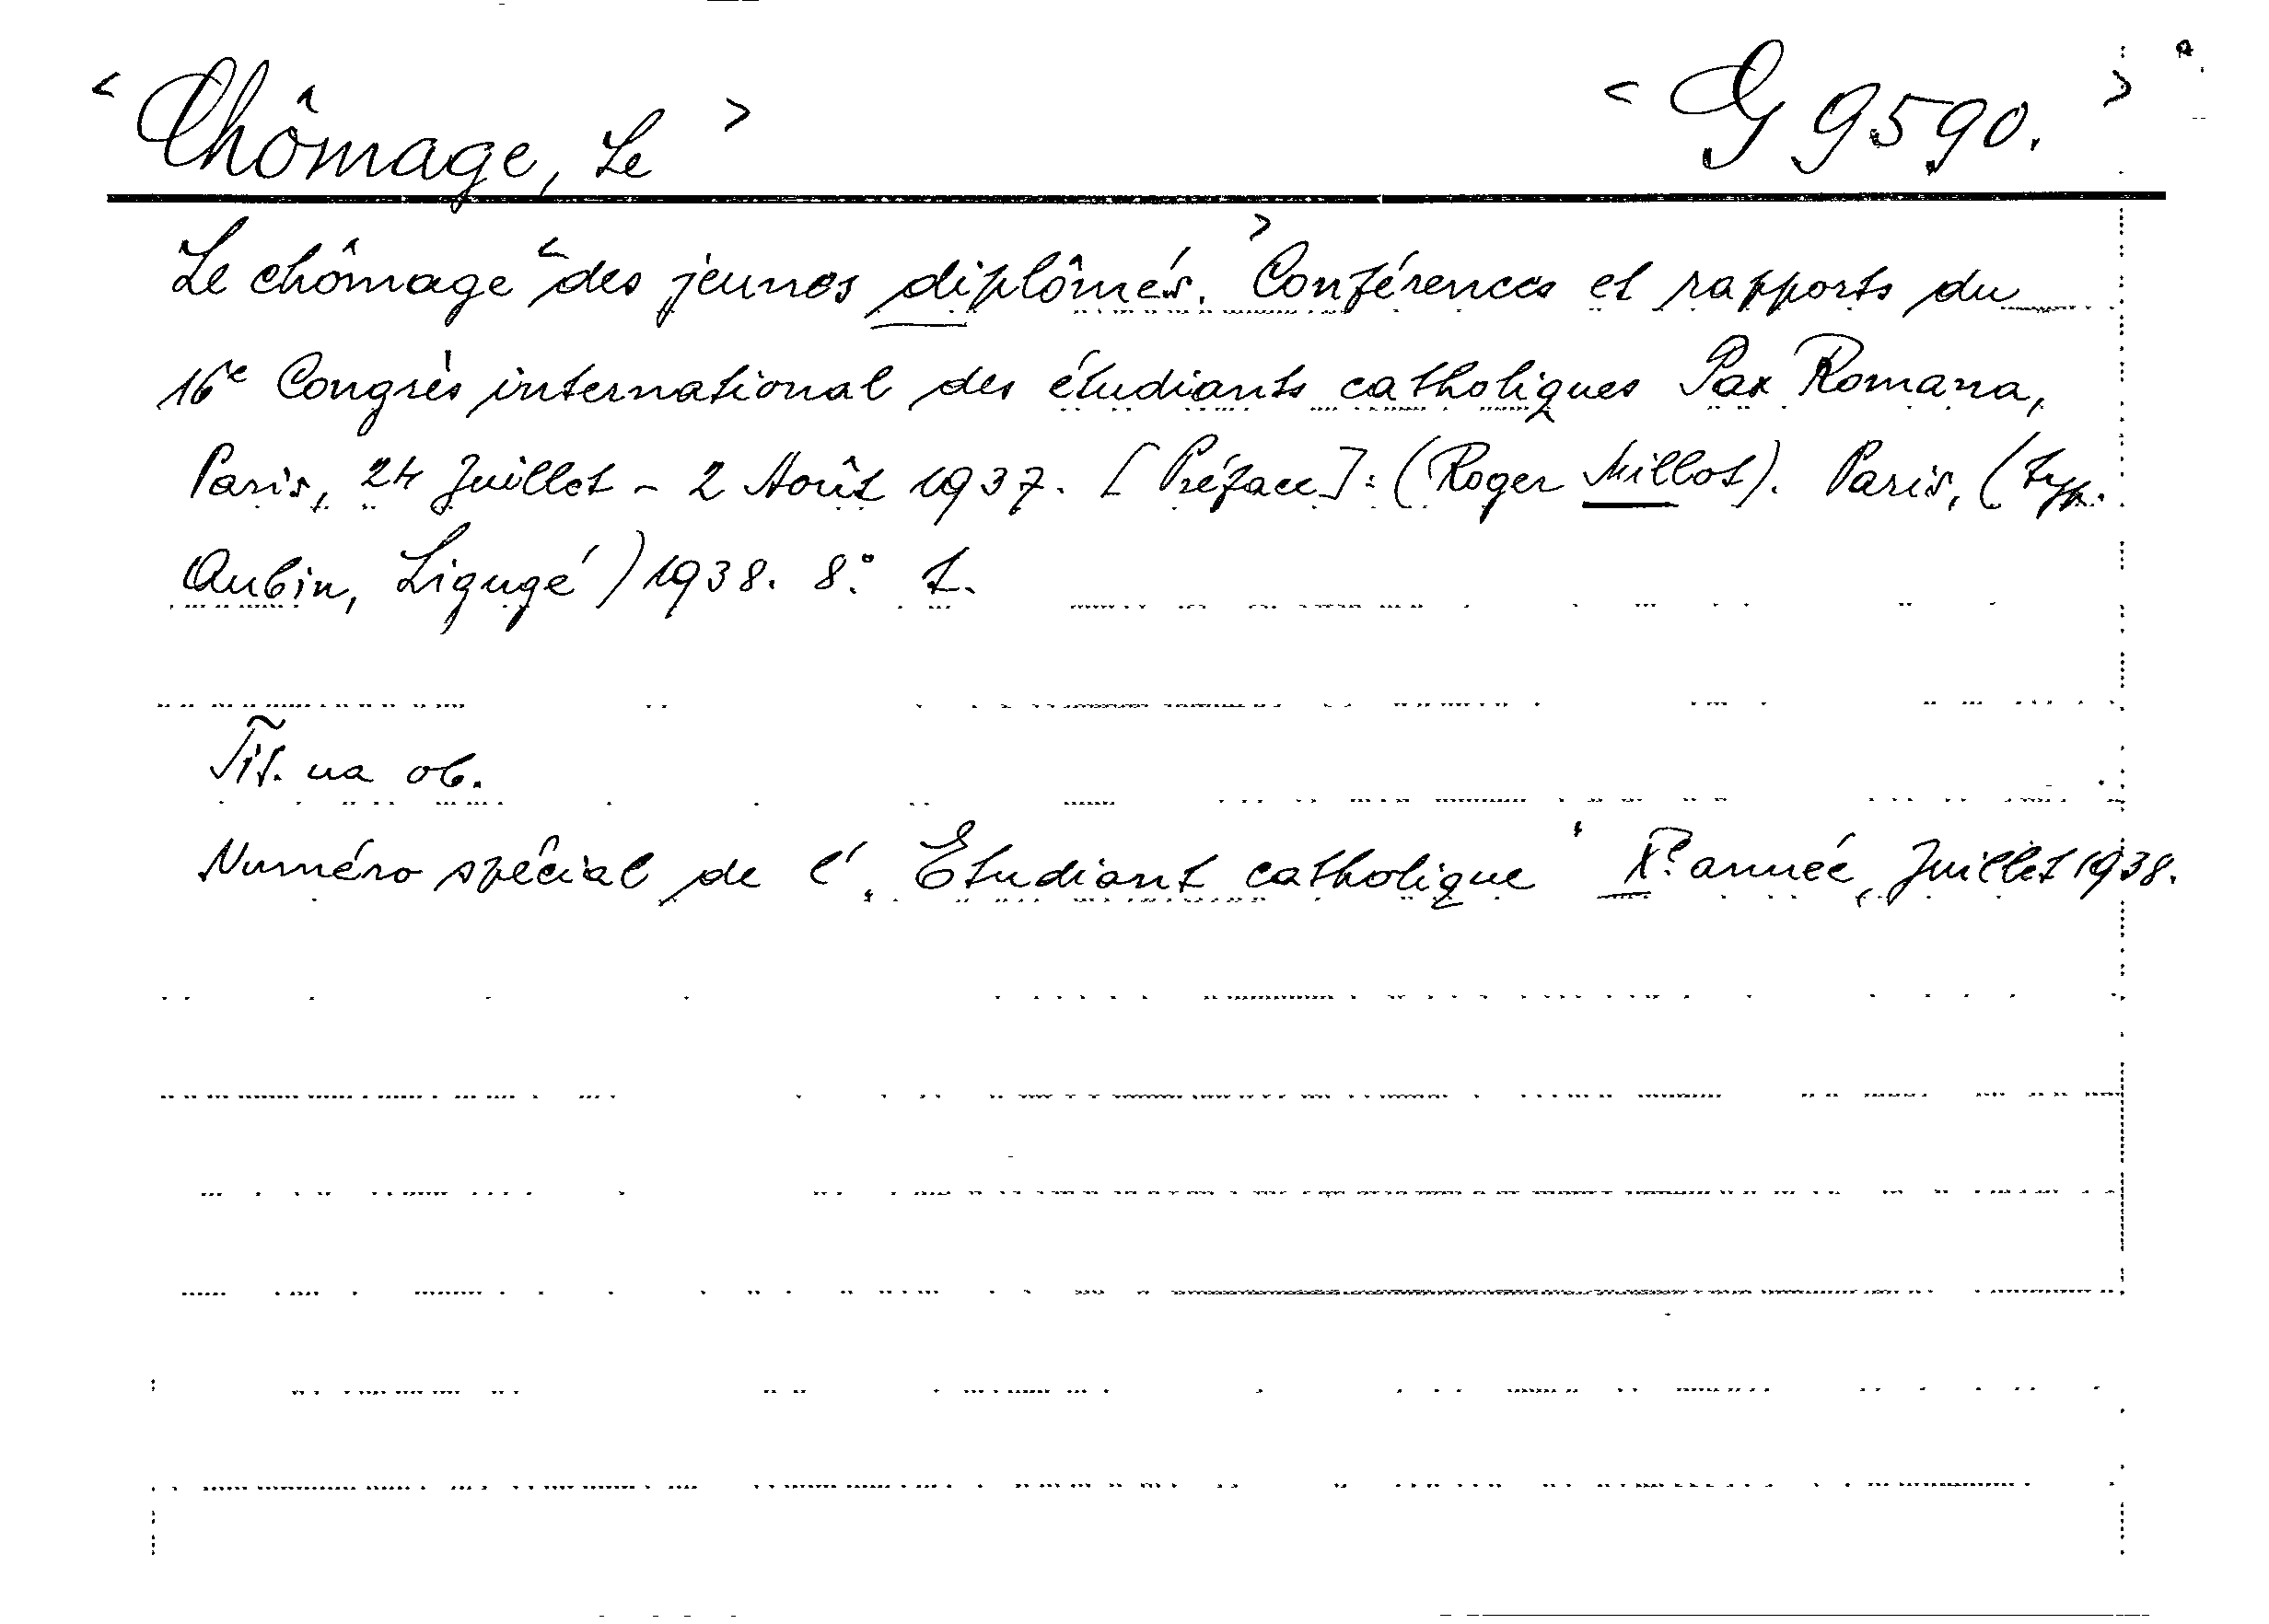 < Chômage, Le > < G 9590. >
Le chômage < des jeunes diplômés. > Conférences et rapports du
16e Congrès international des étudiants catholiques Pax Romana,
Paris, 24 Juillet - 2 Août 1937. [Préface]: (Roger Millot). Paris, (typ.
Aubin, Ligugé) 1938. 8°. 1.
Tit. na ob.
Numéro spécial de l' "Etudiant catholique" Xe année, Juillet 1938.